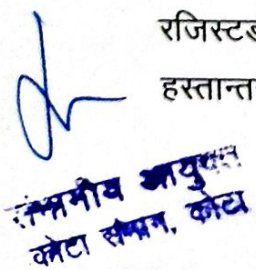 रजिस्टर्ड
हस्तान्त
संभागीय आयुक्त
कोटा संभाग, कोटा